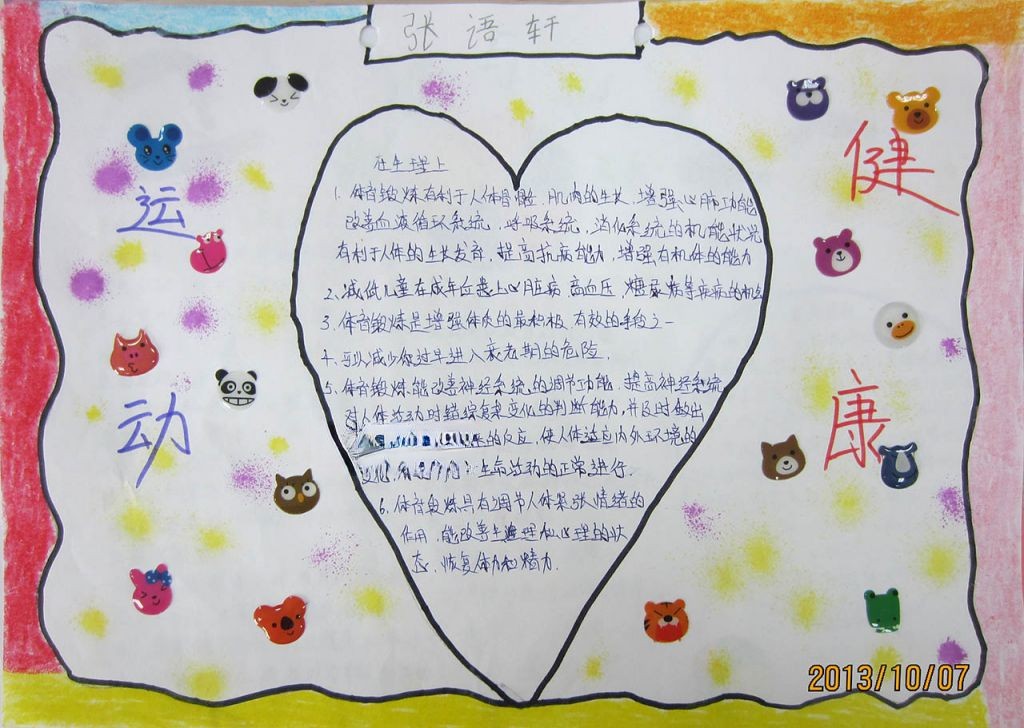 张语轩
运动
健康
在生理上
1、体育锻炼有利于人体骨骼、肌肉的生长,增强心肺功能
改善血液循环系统、呼吸系统、消化系统的机能状况
有利于人体的生长发育,提高抗病能力,增强有机体的能力
2、减低儿童在成年后患上心脏病、高血压、糖尿病等疾病的机会
3、体育锻炼是增强体质的最积极、有效的手段之一
4、可以减少你过早进入衰老期的危险.
5、体育锻炼能改善神经系统的调节功能,提高神经系统
对人体活动时错综复杂变化的判断能力,并及时做出
的反应,使人体适应内外环境的
变化,生命活动的正常进行.
6、体育锻炼具有调节人体紧张情绪的
作用,能改善生理和心理的状
态、恢复体力和精力.
2013/10/07